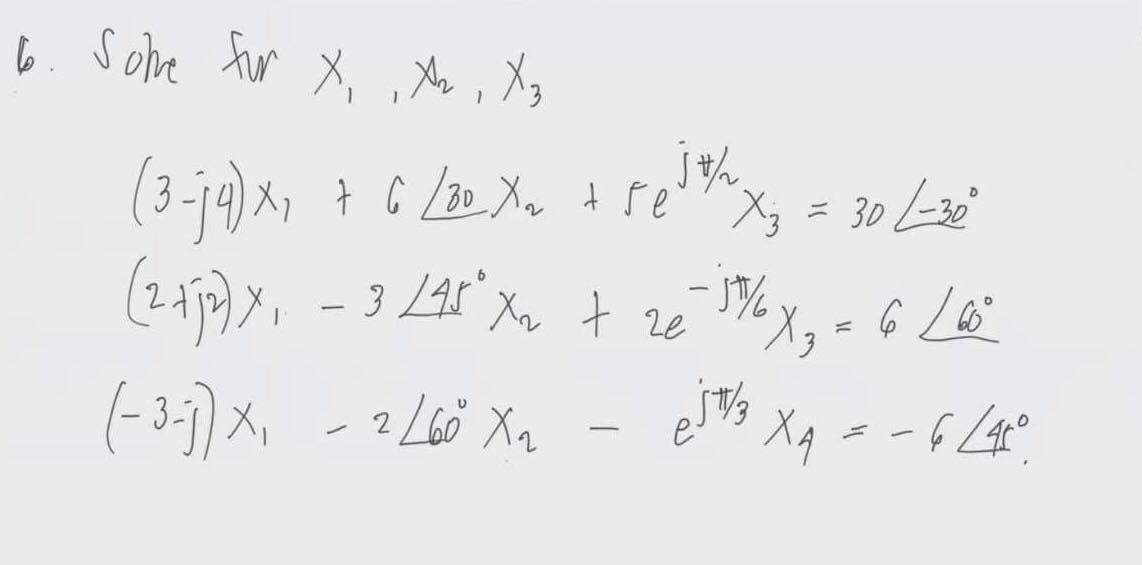 6. Solve for X₁, X₂, X₃
(3-j4)X₁ + 6∠30 X₂ + 5e^{jπ/2} X₃ = 30∠-30°
(2+j2)X₁ - 3∠45° X₂ + 2e^{-jπ/6} X₃ = 6∠60°
(-3-j)X₁ - 2∠60° X₂ - e^{jπ/3} X₄ = -6∠45°.